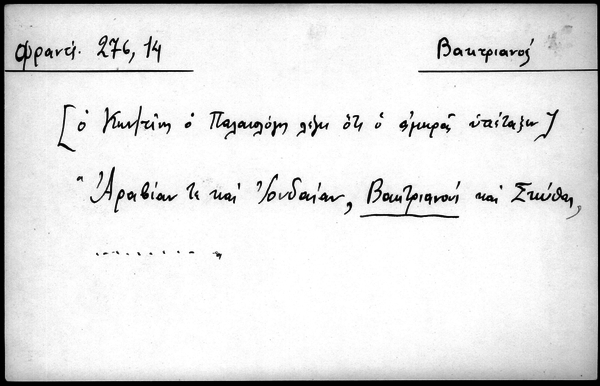 Φραντζ. 276, 14 Βακτριανός
[ὁ Κων/τῖνος ὁ Παλαιολόγος λέγει ὅτι ὁ ἀμηρᾶς ὑπέταξεν]
"Ἀραβίαν τε καὶ Ἰουδαίαν, Βακτριανούς καὶ Σκύθας,
.............."